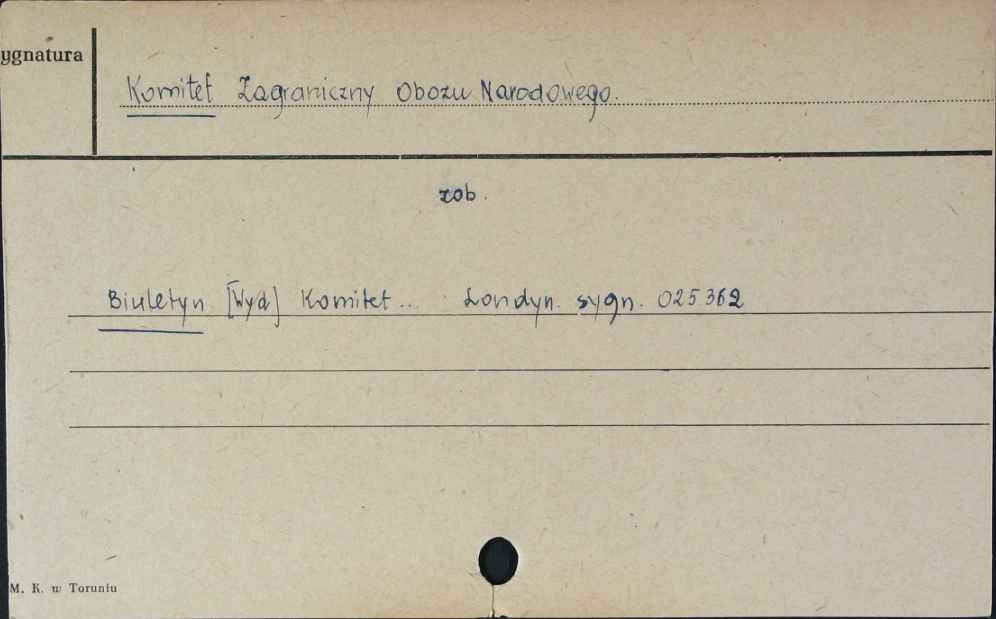 ygnatura
Komitet Zagraniczny Obozu Narodowego.
zob.
Biuletyn [Wyd] Komitet... Londyn. sygn. 025362
M. K. w Toruniu